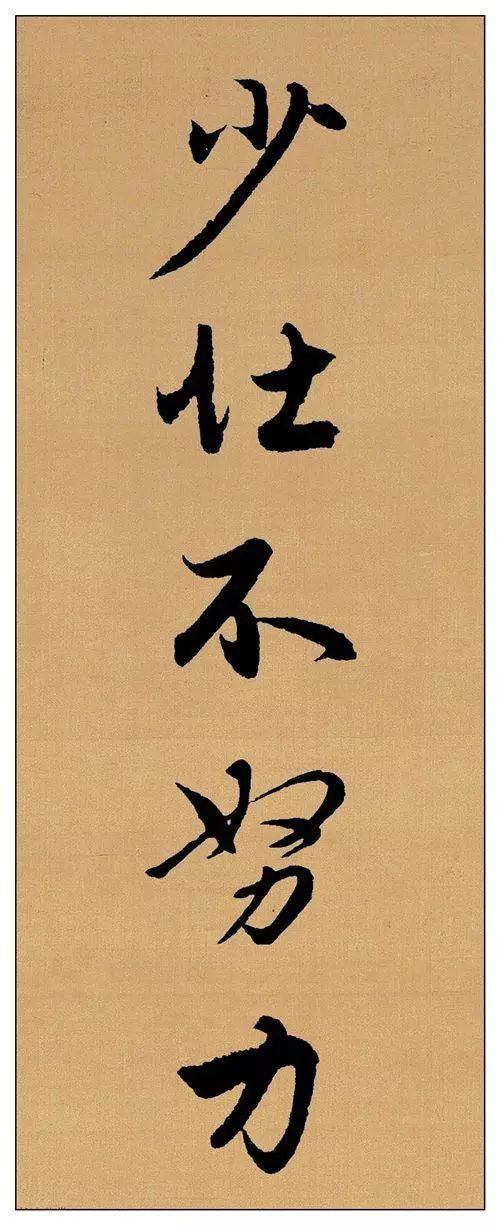 少壮不努力